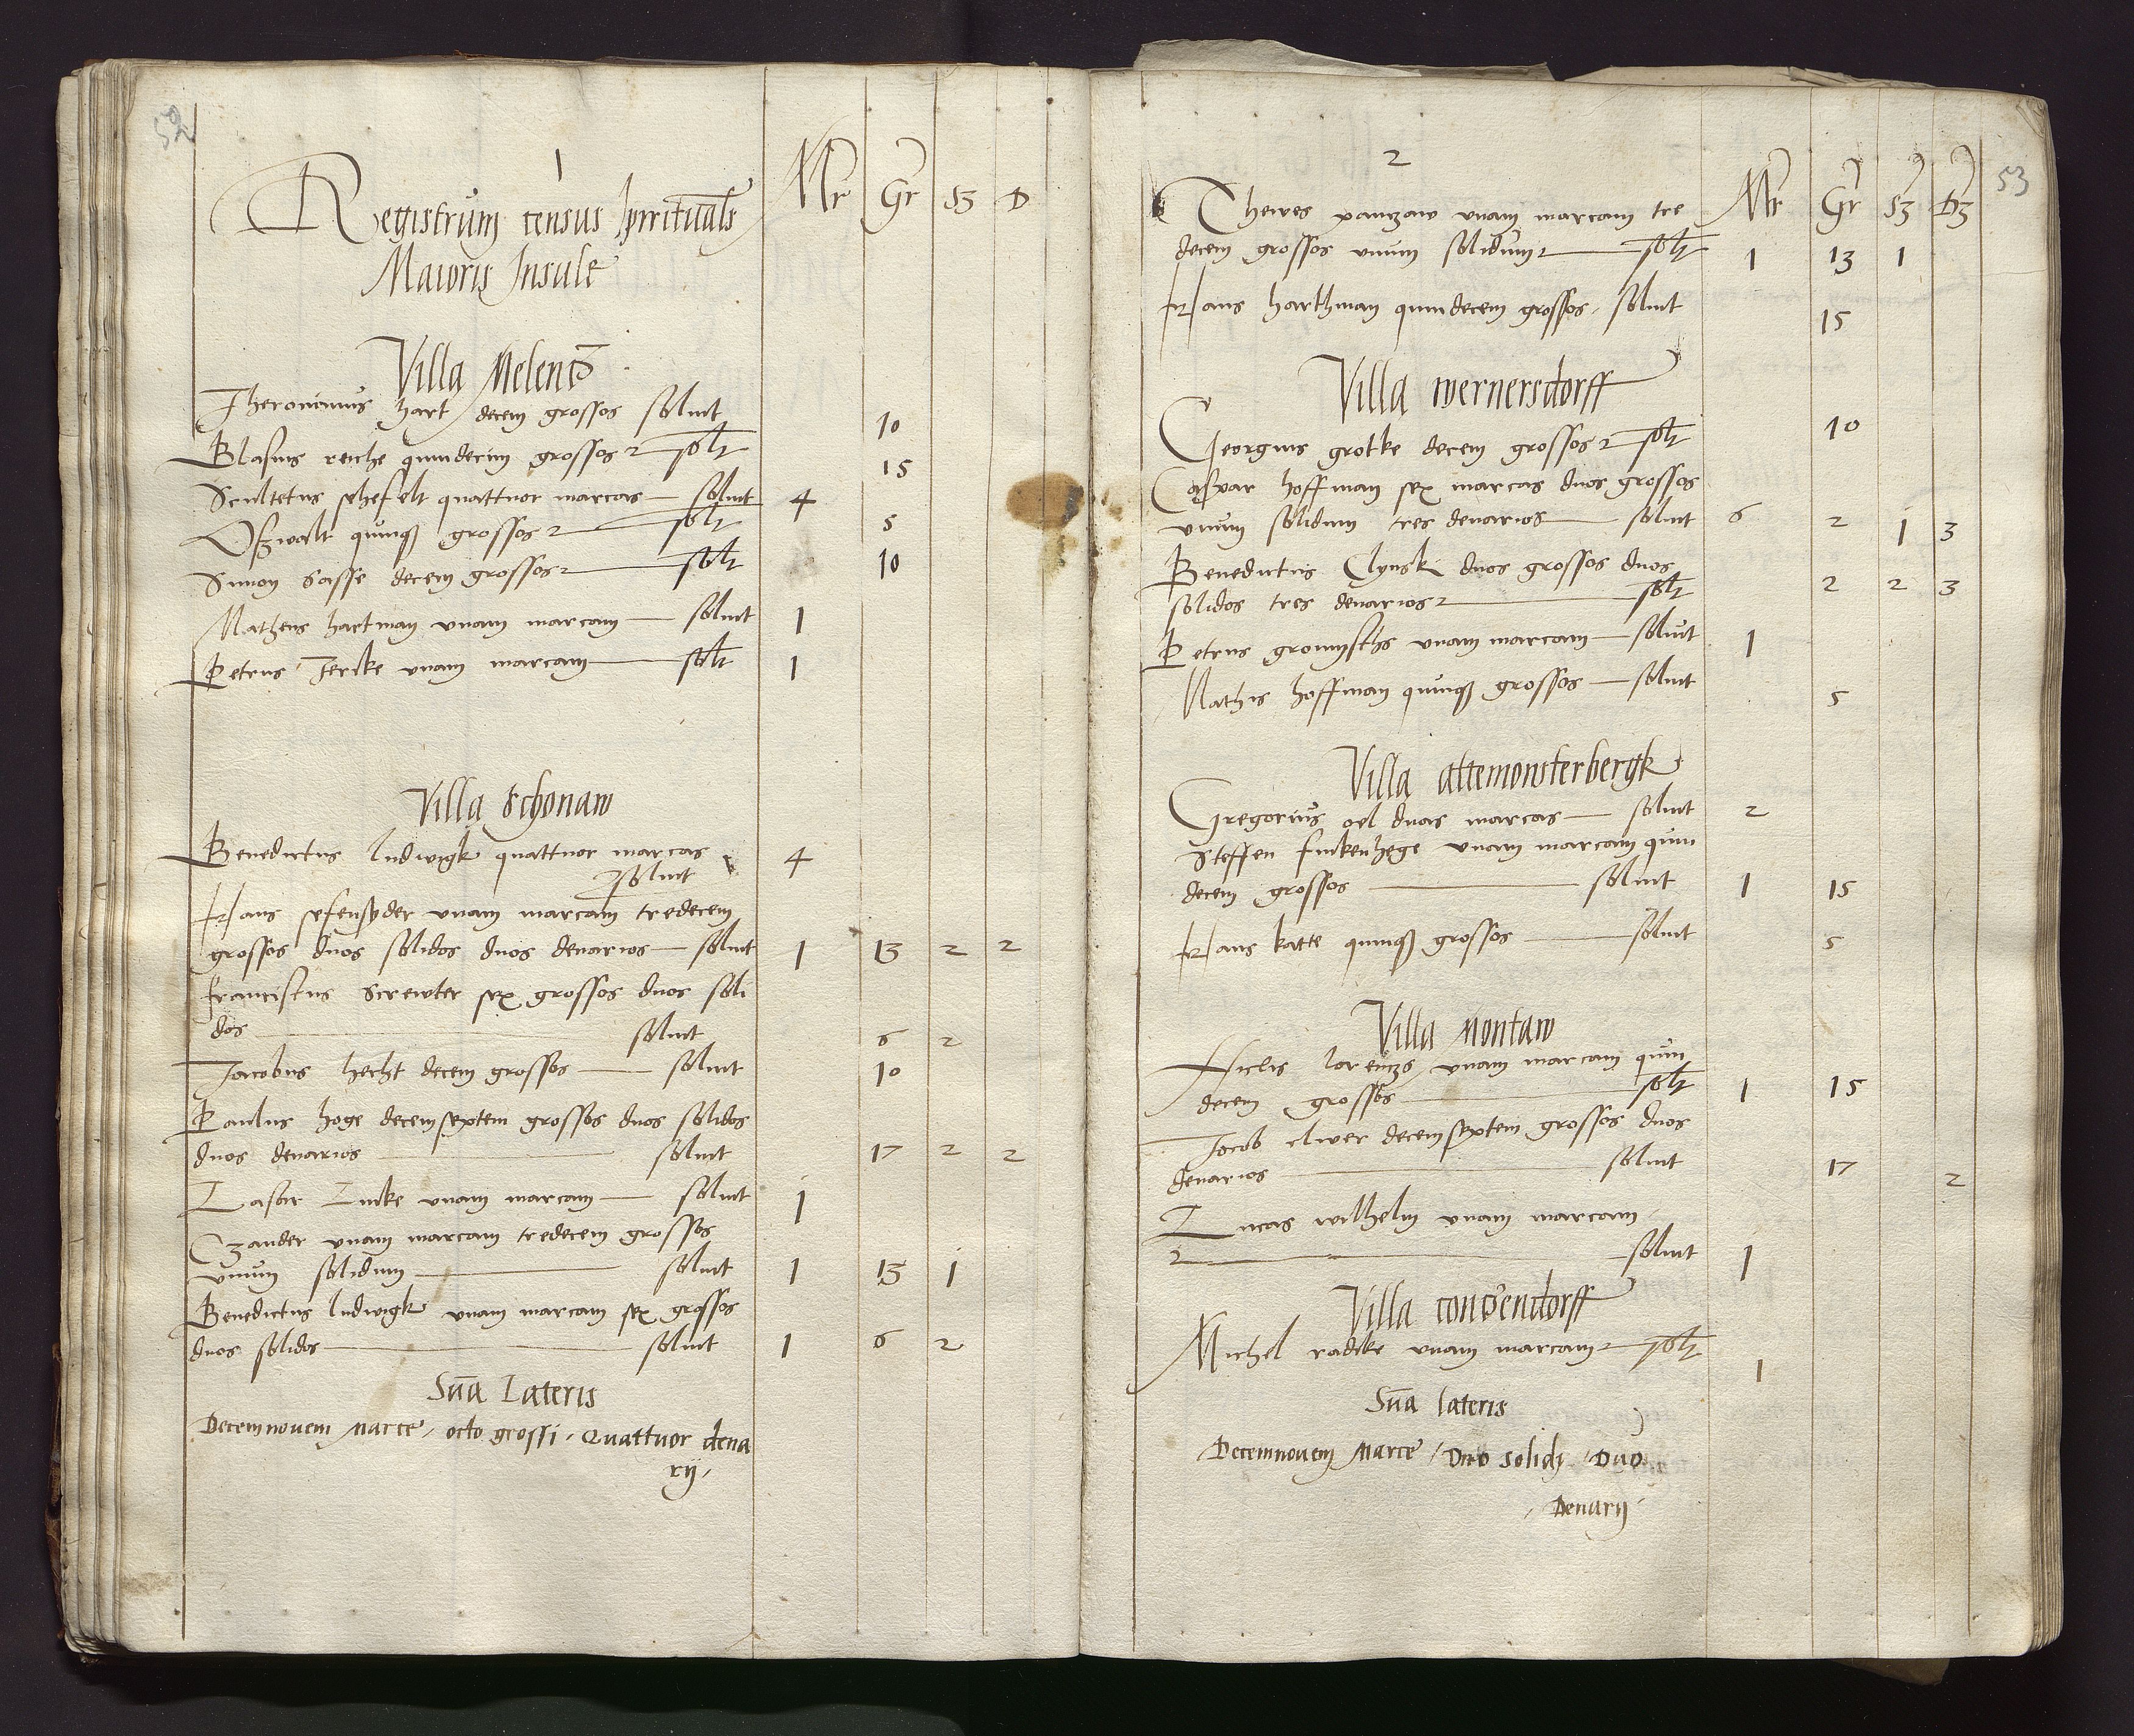 52
1
Registrum census spiritualis
Maioris Insule
Mr Gr S3 D
Villa Melencz
Iheronimus hart decem grossos soluit 10
Blasius reiche quindecim grossos solt 15
Scultetus schefelt quattuor marcas soluit 4
Oszwalt quinq3 grossos solt 5
Simon Sasse decem grossos solt 10
Matheus hartman vnam marcam soluit 1
Petrus Jercke vnam marcam solt 1
Villa Schonaw
Benedictus ludwigk quattuor marcas 4
soluit
Hans vnam marcam tredecem
grossos duos solidos duos denarios soluit 1 13 2 2
franciscus Screwter sex grossos duos soli
dos soluit 6 2
Jacobus hecht decem grossos soluit 10
Paulus hoge decem septem grossos duos solidos
duos denarios soluit 17 2 2
Lasar Linke vnam marcam soluit 1
Czander vnam marcam tredecem grossos
vnum solidum soluit 1 13 1
Benedictus ludwigk vnam marcam sex grossos
duos solidos soluit 1 6 2
Sua Lateris
Decemnouem Marce, octo grossi, Quattuor dena
rij,
53
2
Mr Gr S3 D3
Thewes panczaw vnam marcam tre
decem grossos vnum solidum solt 1 13 1
Hans harthman quindecem grossos, soluit 15
Villa wernersdorff
Georgius grotke decem grossos solt 10
Caspar hoffman sex marcas duos grossos
vnum solidum tres denarios soluit 6 2 1 3
Benedictus Clynsk duos grossos duos
solidos tres denarios solt 2 2 3
Petrus vnam marcam soluit 1
Mathis hoffman quinq3 grossos soluit 5
Villa altemonsterbergk
Gregorius oel duas marcas soluit 2
Steffen finkenhege vnam marcam quin
decem grossos soluit 1 15
Hans katte quinq3 grossos soluit 5
Villa Montaw
Niclis lorenczs vnam marcam quin
decem grossos solt 1 15
Jocob cliwer decem septem grossos duos
denarios soluit 17 2
Lucas wilhelm vnam marcam
soluit 1
Villa conczendorff
Michel radtke vnam marcam solt 1
Sua lateris
Decemnouem Marce, Duo solidi, Duo
Denarij